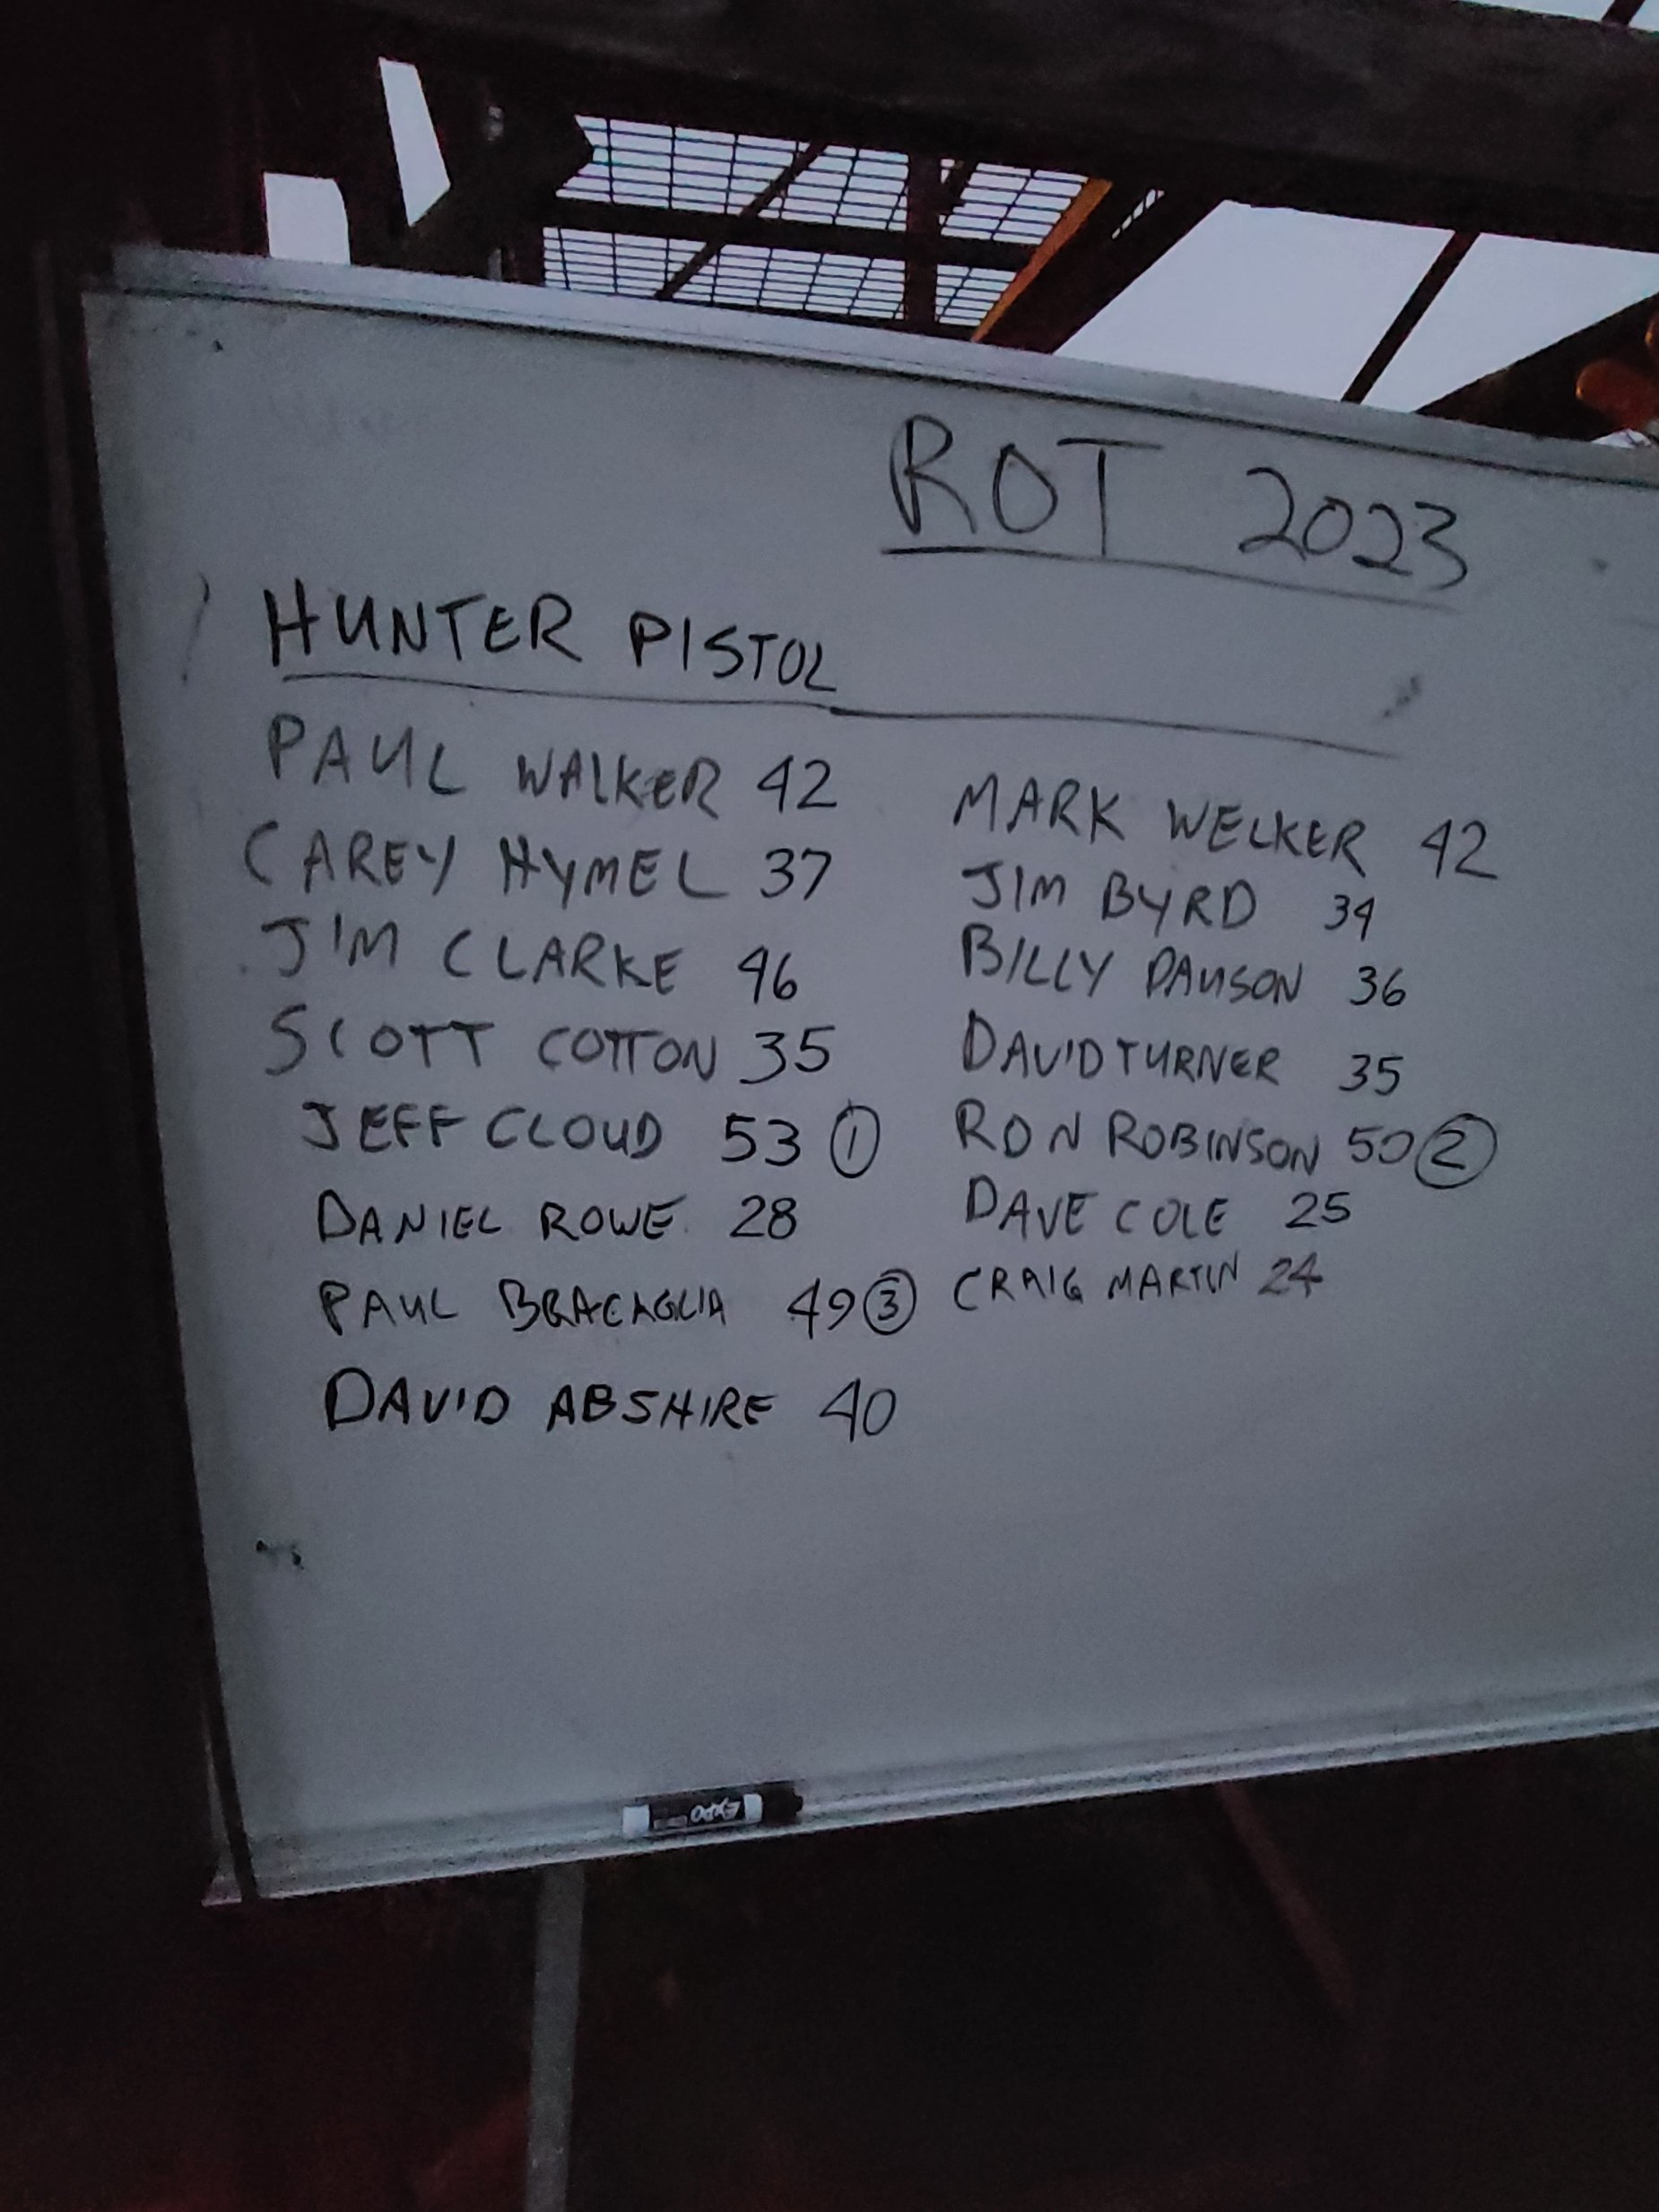 ROT 2023
HUNTER PISTOL
PAUL WALKER 42
CAREY HYMEL 37
JIM CLARKE 46
SCOTT COTTON 35
JEFF CLOUD 53 ①
DANIEL ROWE 28
PAUL BRACAGLIA 49 ③
DAVID ABSHIRE 40
MARK WELKER 42
JIM BYRD 34
BILLY DAWSON 36
DAVID TURNER 35
RON ROBINSON 50 ②
DAVE COLE 25
CRAIG MARTIN 24
EXPO